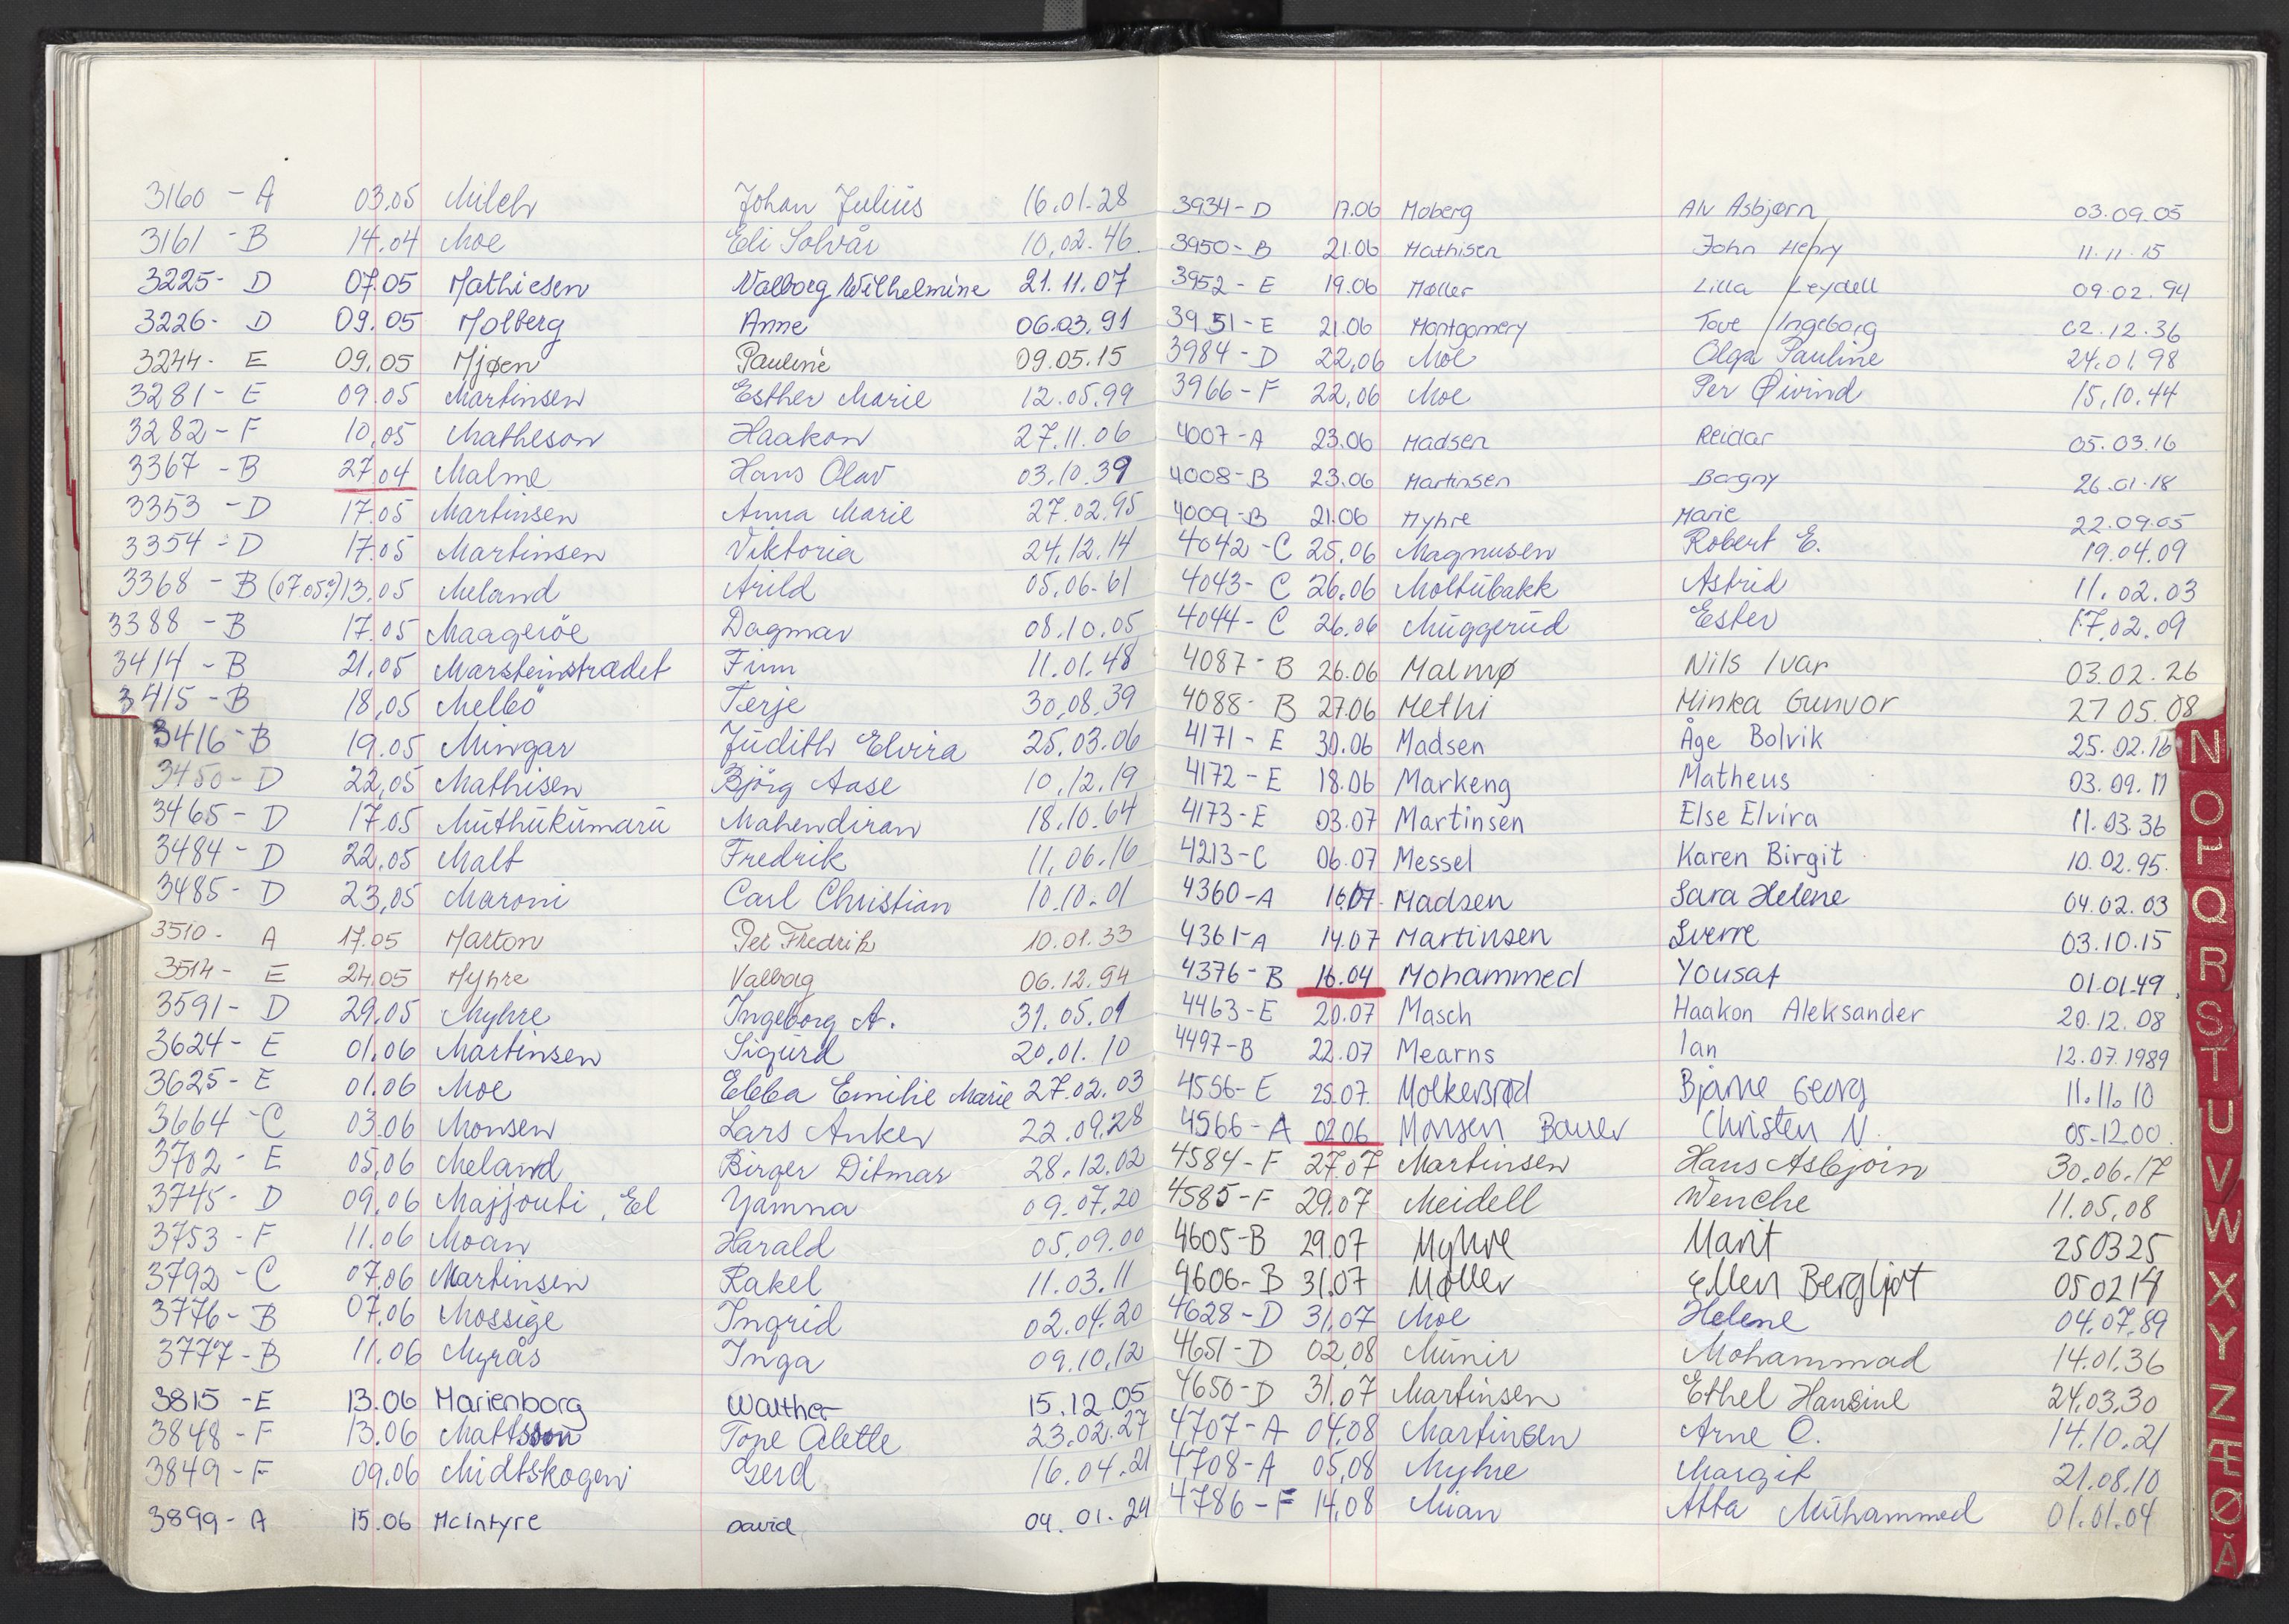 3160 - A 03.05 Milch Johan Julius 16.01.28
3161 - B 14.04 Moe Eli Solvår 10.02.46
3225 - D 07.05 Mathiesen Valborg Wilhelmine 21.11.07
3226 - D 09.05 Molberg Anne 06.03.91
3244 - E 09.05 Mjøen Pauline 09.05.15
3281 - E 09.05 Martinsen Esther Marie 12.05.99
3282 - F 10.05 Matheson Haakon 27.11.06
3367 - B 27.04 Malme Hans Olav 03.10.39
3353 - D 17.05 Martinsen Anna Marie 27.02.95
3354 - D 17.05 Martinsen Viktoria 24.12.14
3368 - B (07.05?) 13.05 Meland Arild 05.06.61
3388 - B 17.05 Maageröe Dagmar 08.10.05
3414 - B 21.05 Marsteinstrædet Finn 11.01.48
3415 - B 18.05 Melbö Terje 30.08.39
3416 - B 19.05 Mingar Judith Elvira 25.03.06
3450 - D 22.05 Mathisen Björg Aase 10.12.19
3465 - D 17.05 Muthukumaru Mahendiran 18.10.64
3484 - D 22.05 Malt Fredrik 11.06.16
3485 - D 23.05 Maroni Carl Christian 10.10.01
3510 - A 17.05 Marton Per Fredrik 10.01.33
3514 - E 24.05 Myhre Valborg 06.12.94
3591 - D 29.05 Myhre Ingeborg A. 31.05.01
3624 - E 01.06 Martinsen Sigurd 20.01.10
3625 - E 01.06 Moe Ebba Emilie Marie 27.02.03
3664 - C 03.06 Monsen Lars Anker 22.09.28
3702 - E 05.06 Meland Birger Ditmar 28.12.02
3745 - D 09.06 Majjouti, El Yamna 09.07.20
3753 - F 11.06 Moan Harald 05.09.00
3792 - C 07.06 Martinsen Rakel 11.03.11
3776 - B 07.06 Mossige Ingrid 02.04.20
3777 - B 11.06 Myrås Inga 09.10.12
3815 - E 13.06 Marienborg Walther 15.12.05
3848 - F 13.06 Mattsson Tone Alette 23.02.27
3849 - F 09.06 Midtskogen Gerd 16.04.21
3899 - A 15.06 McIntyre David 04.01.24
3934 - D 17.06 Moberg Alv Asbjørn 03.09.05
3950 - B 21.06 Mathisen John Henry 11.11.15
3952 - E 19.06 Møller Lilla Leydell 09.02.94
3951 - E 21.06 Montgomery Tove Ingeborg 02.12.36
3984 - D 22.06 Moe Olga Pauline 24.01.98
3966 - F 22.06 Moe Per Øivind 15.10.44
4007 - A 23.06 Madsen Reidar 05.03.16
4008 - B 23.06 Martinsen Borgny 26.01.18
4009 - B 21.06 Myhre Marie 22.09.05
4042 - C 25.06 Magnusen Robert E. 19.04.09
4043 - C 26.06 Moltubakk Astrid 11.02.03
4044 - C 26.06 Muggerud Ester 17.02.09
4087 - B 26.06 Malmø Nils Ivar 03.02.26
4088 - B 27.06 Methi Minka Gunvor 27 05.08
4171 - E 30.06 Madsen Åge Bolvik 25.02.16
4172 - E 18.06 Markeng Matheus 03.09.11
4173 - E 03.07 Martinsen Else Elvira 11.03.36
4213 - C 06.07 Messel Karen Birgit 10.02.95.
4360 - A 16.07 Madsen Sara Helene 04.02.03
4361 - A 14.07 Martinsen Sverre 03.10.15
4376 - B 16.04 Mohammed Yousaf 01.01.49
4463 - E 20.07 Masch Haakon Aleksander 20.12.08
4497 - B 22.07 Mearns Ian 12.07.1989
4556 - E 25.07. Molkersrød Bjarne Georg 11.11.10
4566 - A 02.06 Monsen Bauer Christen N. 05-12.00.
4584 - F 27.07 Martinsen Hans Asbjörn 30.06.17
4585 - F 29.07 Meidell Wenche 11.05.08
4605 - B 29.07 Myhre Marit 250325
4606 - B 31.07 Møller Ellen Bergljot 050214
4628 - D 31.07 Moe Helene 04.07.89
4651 - D 02.08 Munir Mohammad 14.01.36
4650 - D 31.07 Martinsen Ethel Hansine 24.03.30
4707 - A 04.08 Martinsen Arne O. 14.10.21
4708 - A 05.08 Myhre Margit 21.08.10
4786 - F 14.08 Mian Atta Muhammed 01.01.04
N
O
P
Q
R
S
T
U
V
W
X
Y
Z
Æ
Ø
Å